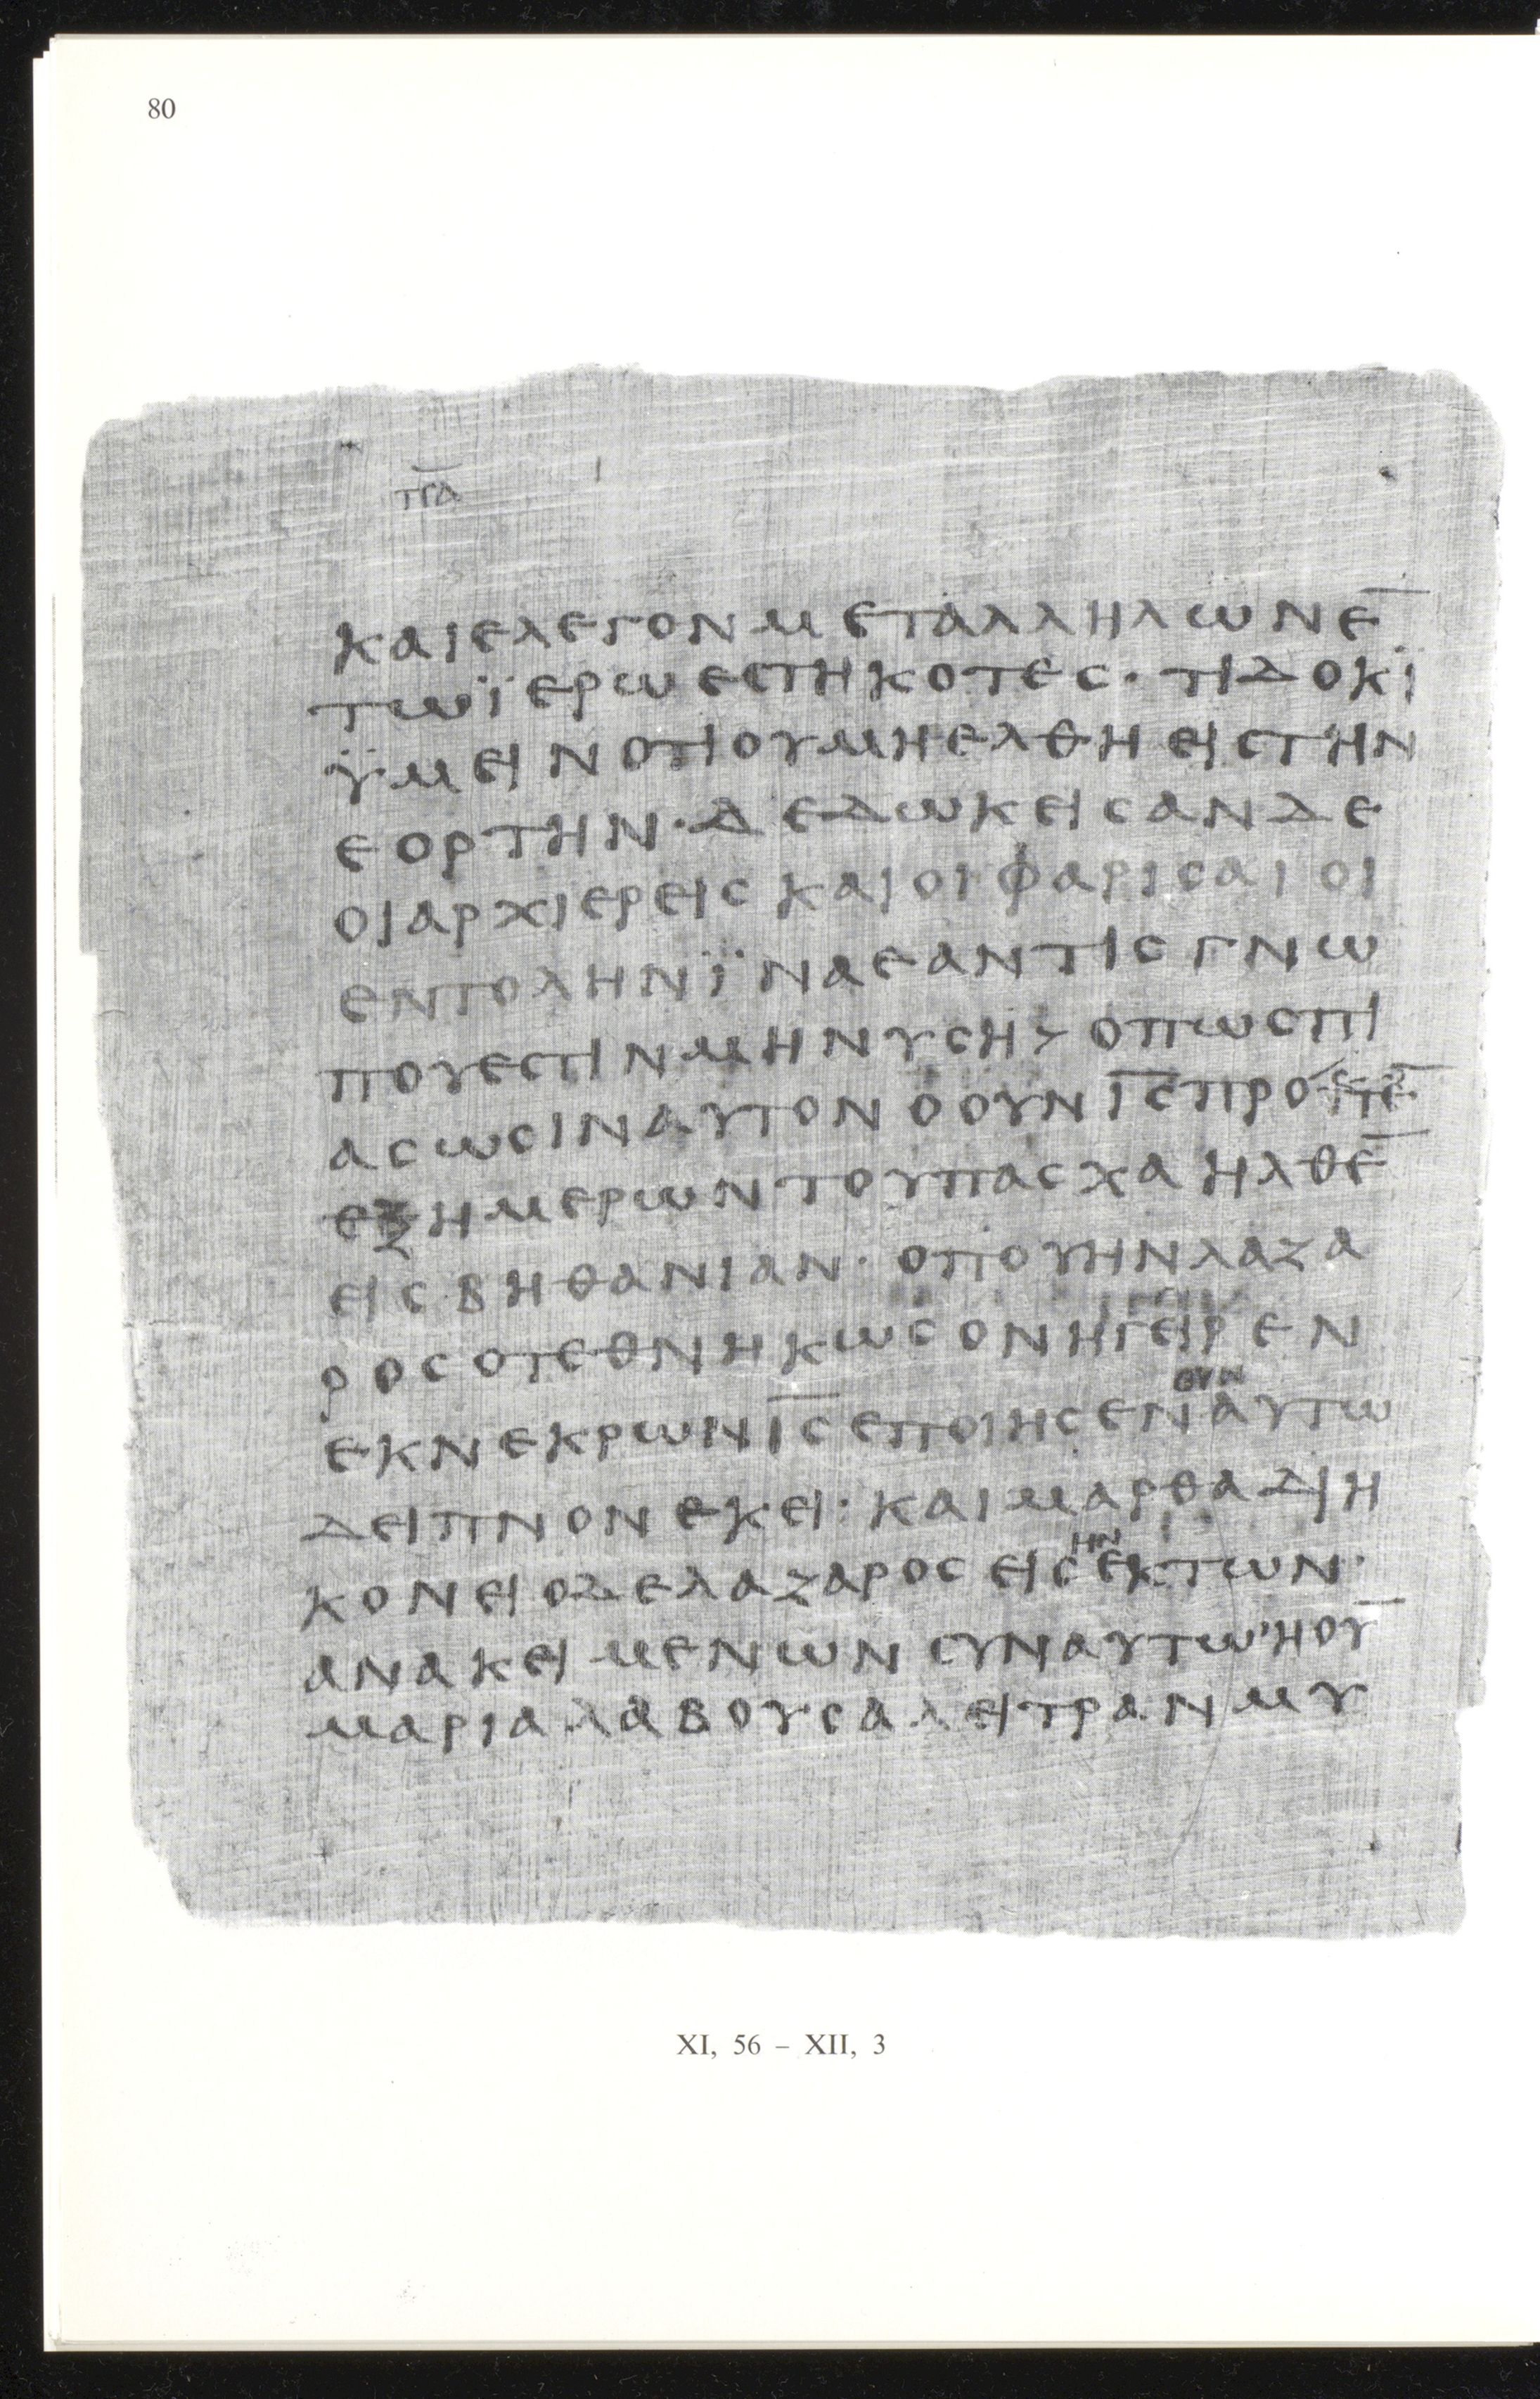 80
π̅α̅
και ελεγον μετ αλληλων ε̅
τω ϊερω εστηκοτες · τι δοκϊ
ϋμειν οτι ου μη ελθη εις την
εορτην · δεδωκεισαν δε
οι αρχιερεις και οι φαρισαιοι
εντολην ϊνα εαν τις γνω
που εστιν μηνυση > οπως πι
ασωσιν αυτον ο ουν ι̅ς̅ προ
εξ ημερων του πασχα ηλθε̅
εις βηθανιαν · οπου ην λαζα
ρος ο τεθνηκως ον ηγειρεν
ουν
εκ νεκρων ι̅ς̅ εποιησεν αυτω
δειπνον εκει · και μαρθα διη
ην
κονει ο δε λαζαρος εις εκ των ·
ανακειμενων συν αυτω ʼη ου̅
μαρια λαβουσα λειτραν μυ
XI, 56 – XII, 3